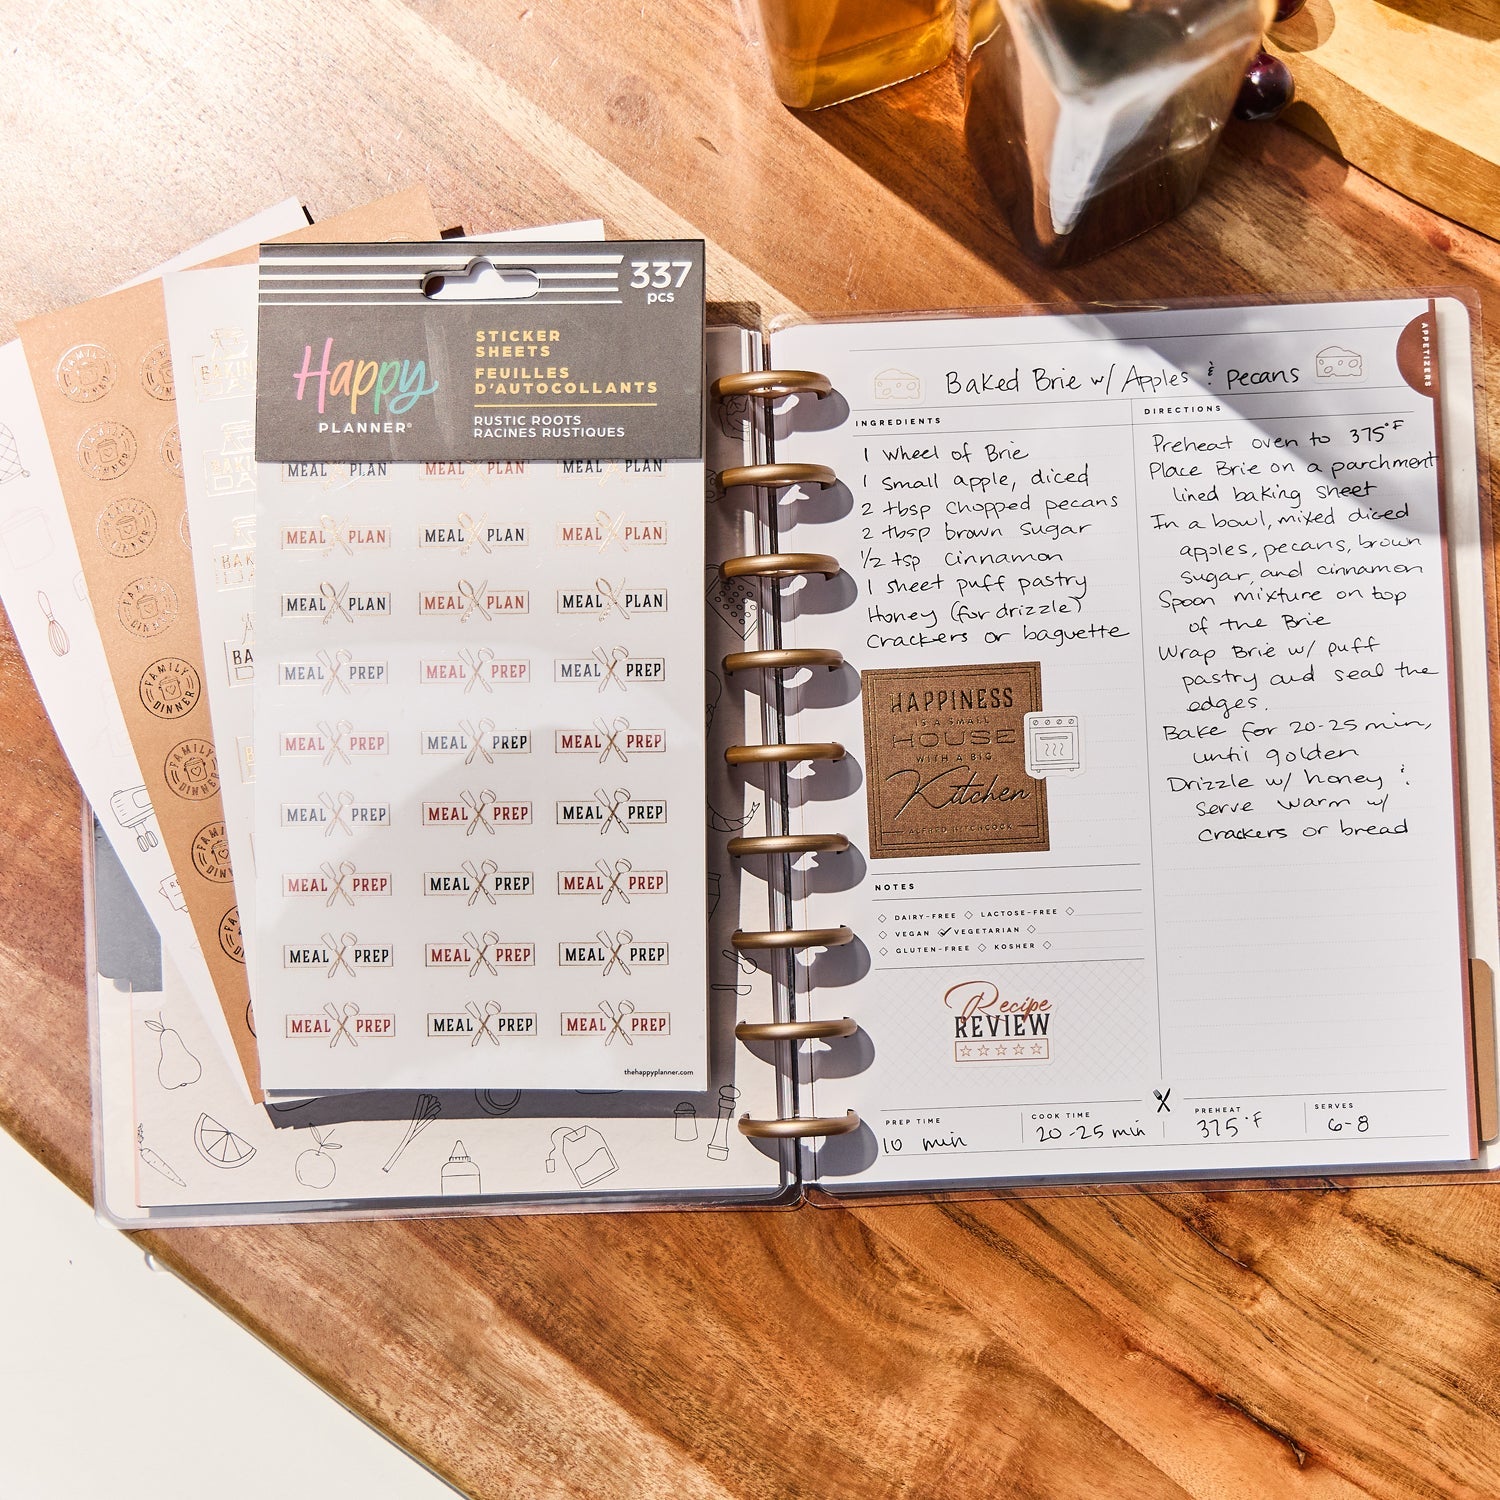 337
pcs
Happy
PLANNER®
STICKER
SHEETS
FEUILLES
D'AUTOCOLLANTS
RUSTIC ROOTS
RACINES RUSTIQUES
MEAL PLAN MEAL PLAN MEAL PLAN
MEAL PLAN MEAL PLAN MEAL PLAN
MEAL PLAN MEAL PLAN MEAL PLAN
MEAL PREP MEAL PREP MEAL PREP
MEAL PREP MEAL PREP MEAL PREP
MEAL PREP MEAL PREP MEAL PREP
MEAL PREP MEAL PREP MEAL PREP
MEAL PREP MEAL PREP MEAL PREP
MEAL PREP MEAL PREP MEAL PREP
thehappyplanner.com
FAMILY DINNER
FAMILY DINNER
FAMILY DINNER
FAMILY DINNER
FAMILY DINNER
FAMILY DINNER
APPETIZERS
Baked Brie w/ Apples & pecans
INGREDIENTS
1 wheel of Brie
1 small apple, diced
2 tbsp chopped pecans
2 tbsp brown sugar
1/2 tsp cinnamon
1 sheet puff pastry
Honey (for drizzle)
crackers or baguette
HAPPINESS
IS A SMALL
HOUSE
WITH A BIG
Kitchen
ALFRED HITCHCOCK
NOTES
DAIRY-FREE LACTOSE-FREE
VEGAN VEGETARIAN
GLUTEN-FREE KOSHER
Recipe
REVIEW
DIRECTIONS
Preheat oven to 375°F
Place Brie on a parchment
lined baking sheet
In a bowl, mixed diced
apples, pecans, brown
sugar, and cinnamon
Spoon mixture on top
of the Brie
Wrap Brie w/ puff
pastry and seal the
edges.
Bake for 20-25 min,
until golden
Drizzle w/ honey &
serve warm w/
crackers or bread
PREP TIME
10 min
COOK TIME
20-25 min
PREHEAT
375°F
SERVES
6-8